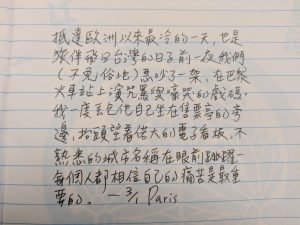 抵達歐洲以來最冷的一天,也是
旅伴飛回台灣的日子。前一夜我們
(不免俗地)惡吵了一架,在巴黎
火車站上演咒罵喫嚎哭的戲碼。
我一度丟包他自己坐在售票亭的旁
邊,抬頭望著偌大的電子看板,不
熟悉的城市名稱在眼前跳躍—
每個人都相信自己的痛苦是最重
要的。 —3/1 Paris